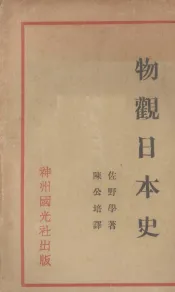 物觀日本史
佐野學著
陳公培譯
神州國光社出版